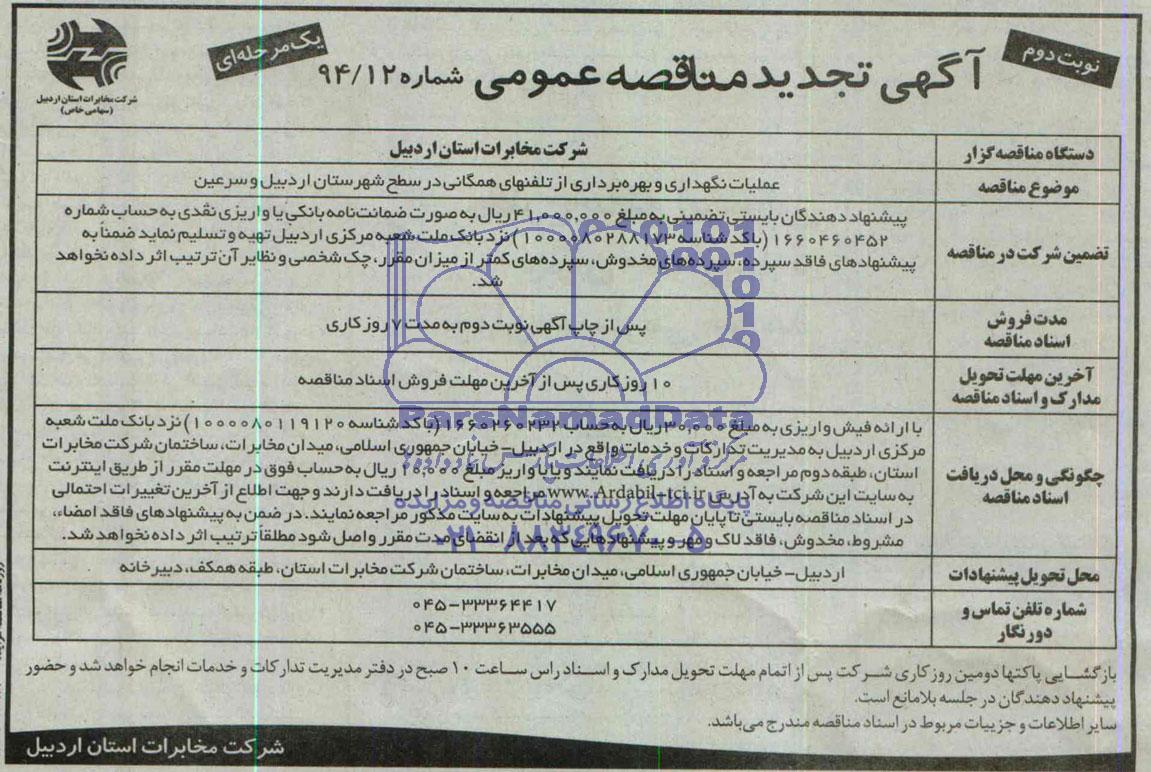 نوبت دوم
آگهی تجدید مناقصه عمومی شماره ۹۴/۱۲
یک مرحله‌ای
شرکت مخابرات استان اردبیل
(سهامی خاص)
دستگاه مناقصه گزار
شرکت مخابرات استان اردبیل
موضوع مناقصه
عملیات نگهداری و بهره‌برداری از تلفنهای همگانی در سطح شهرستان اردبیل و سرعین
تضمین شرکت در مناقصه
پیشنهاد دهندگان بایستی تضمینی به مبلغ ۴۱,۰۰۰,۰۰۰ ریال به صورت ضمانت‌نامه بانکی یا واریزی نقدی به حساب شماره
۱۶۶۰۴۶۰۴۵۲ (با کد شناسه ۱۰۰۰۰۸۰۲۸۸۱۷۳) نزد بانک ملت شعبه مرکزی اردبیل تهیه و تسلیم نماید ضمناً به
پیشنهادهای فاقد سپرده، سپرده‌های مخدوش، سپرده‌های کمتر از میزان مقرر، چک شخصی و نظایر آن ترتیب اثر داده نخواهد
شد.
مدت فروش
اسناد مناقصه
پس از چاپ آگهی نوبت دوم به مدت ۷ روز کاری
آخرین مهلت تحویل
مدارک و اسناد مناقصه
۱۰ روز کاری پس از آخرین مهلت فروش اسناد مناقصه
چگونگی و محل دریافت
اسناد مناقصه
با ارائه فیش واریزی به مبلغ ۳۰,۰۰۰ ریال به حساب ۱۶۶۰۲۶۰۲۳۲ (با کد شناسه ۱۰۰۰۰۸۰۱۱۹۱۲۰) نزد بانک ملت شعبه
مرکزی اردبیل به مدیریت تدارکات و خدمات واقع در اردبیل – خیابان جمهوری اسلامی، میدان مخابرات، ساختمان شرکت مخابرات
استان، طبقه دوم مراجعه و اسناد را دریافت نمایند و یا با واریز مبلغ ۲۰,۰۰۰ ریال به حساب فوق در مهلت مقرر از طریق اینترنت
به سایت این شرکت به آدرس www.Ardabil-tci.ir مراجعه و اسناد را دریافت دارند و جهت اطلاع از آخرین تغییرات احتمالی
در اسناد مناقصه بایستی تا پایان مهلت تحویل پیشنهادات به سایت مذکور مراجعه نمایند. در ضمن به پیشنهادهای فاقد امضاء،
مشروط، مخدوش، فاقد لاک و مهر و پیشنهادهایی که بعد از انقضای مدت مقرر واصل شود مطلقاً ترتیب اثر داده نخواهد شد.
محل تحویل پیشنهادات
اردبیل – خیابان جمهوری اسلامی، میدان مخابرات، ساختمان شرکت مخابرات استان، طبقه همکف، دبیرخانه
شماره تلفن تماس و
دورنگار
۰۴۵–۳۳۳۶۴۴۱۷
۰۴۵–۳۳۳۶۳۵۵۵
بازگشایی پاکتها دومین روز کاری شرکت پس از اتمام مهلت تحویل مدارک و اسناد راس ساعت ۱۰ صبح در دفتر مدیریت تدارکات و خدمات انجام خواهد شد و حضور
پیشنهاد دهندگان در جلسه بلامانع است.
سایر اطلاعات و جزییات مربوط در اسناد مناقصه مندرج می‌باشد.
شرکت مخابرات استان اردبیل
ParsNamadData
پایگاه اطلاع رسانی مناقصه و مزایده
۰۲۱–۸۸۳۴۹۶۷۰–۵